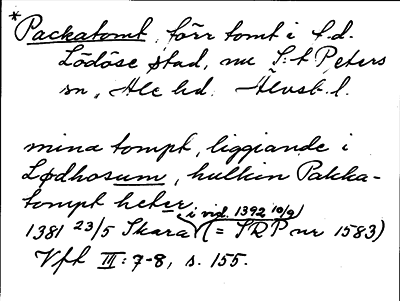 *Packatomt, förr tomt i f.d.
Lödöse stad, nu S:t Peters
sn, Ale hd. Älvsb. l.
mina tompt, liggiande i
Lødhosum, hulkin Pakka-
tompt heter
i vid. 1392 10/9
1381 23/5 Skara (= SRP nr 1583)
Vft III: 7-8, s. 155.